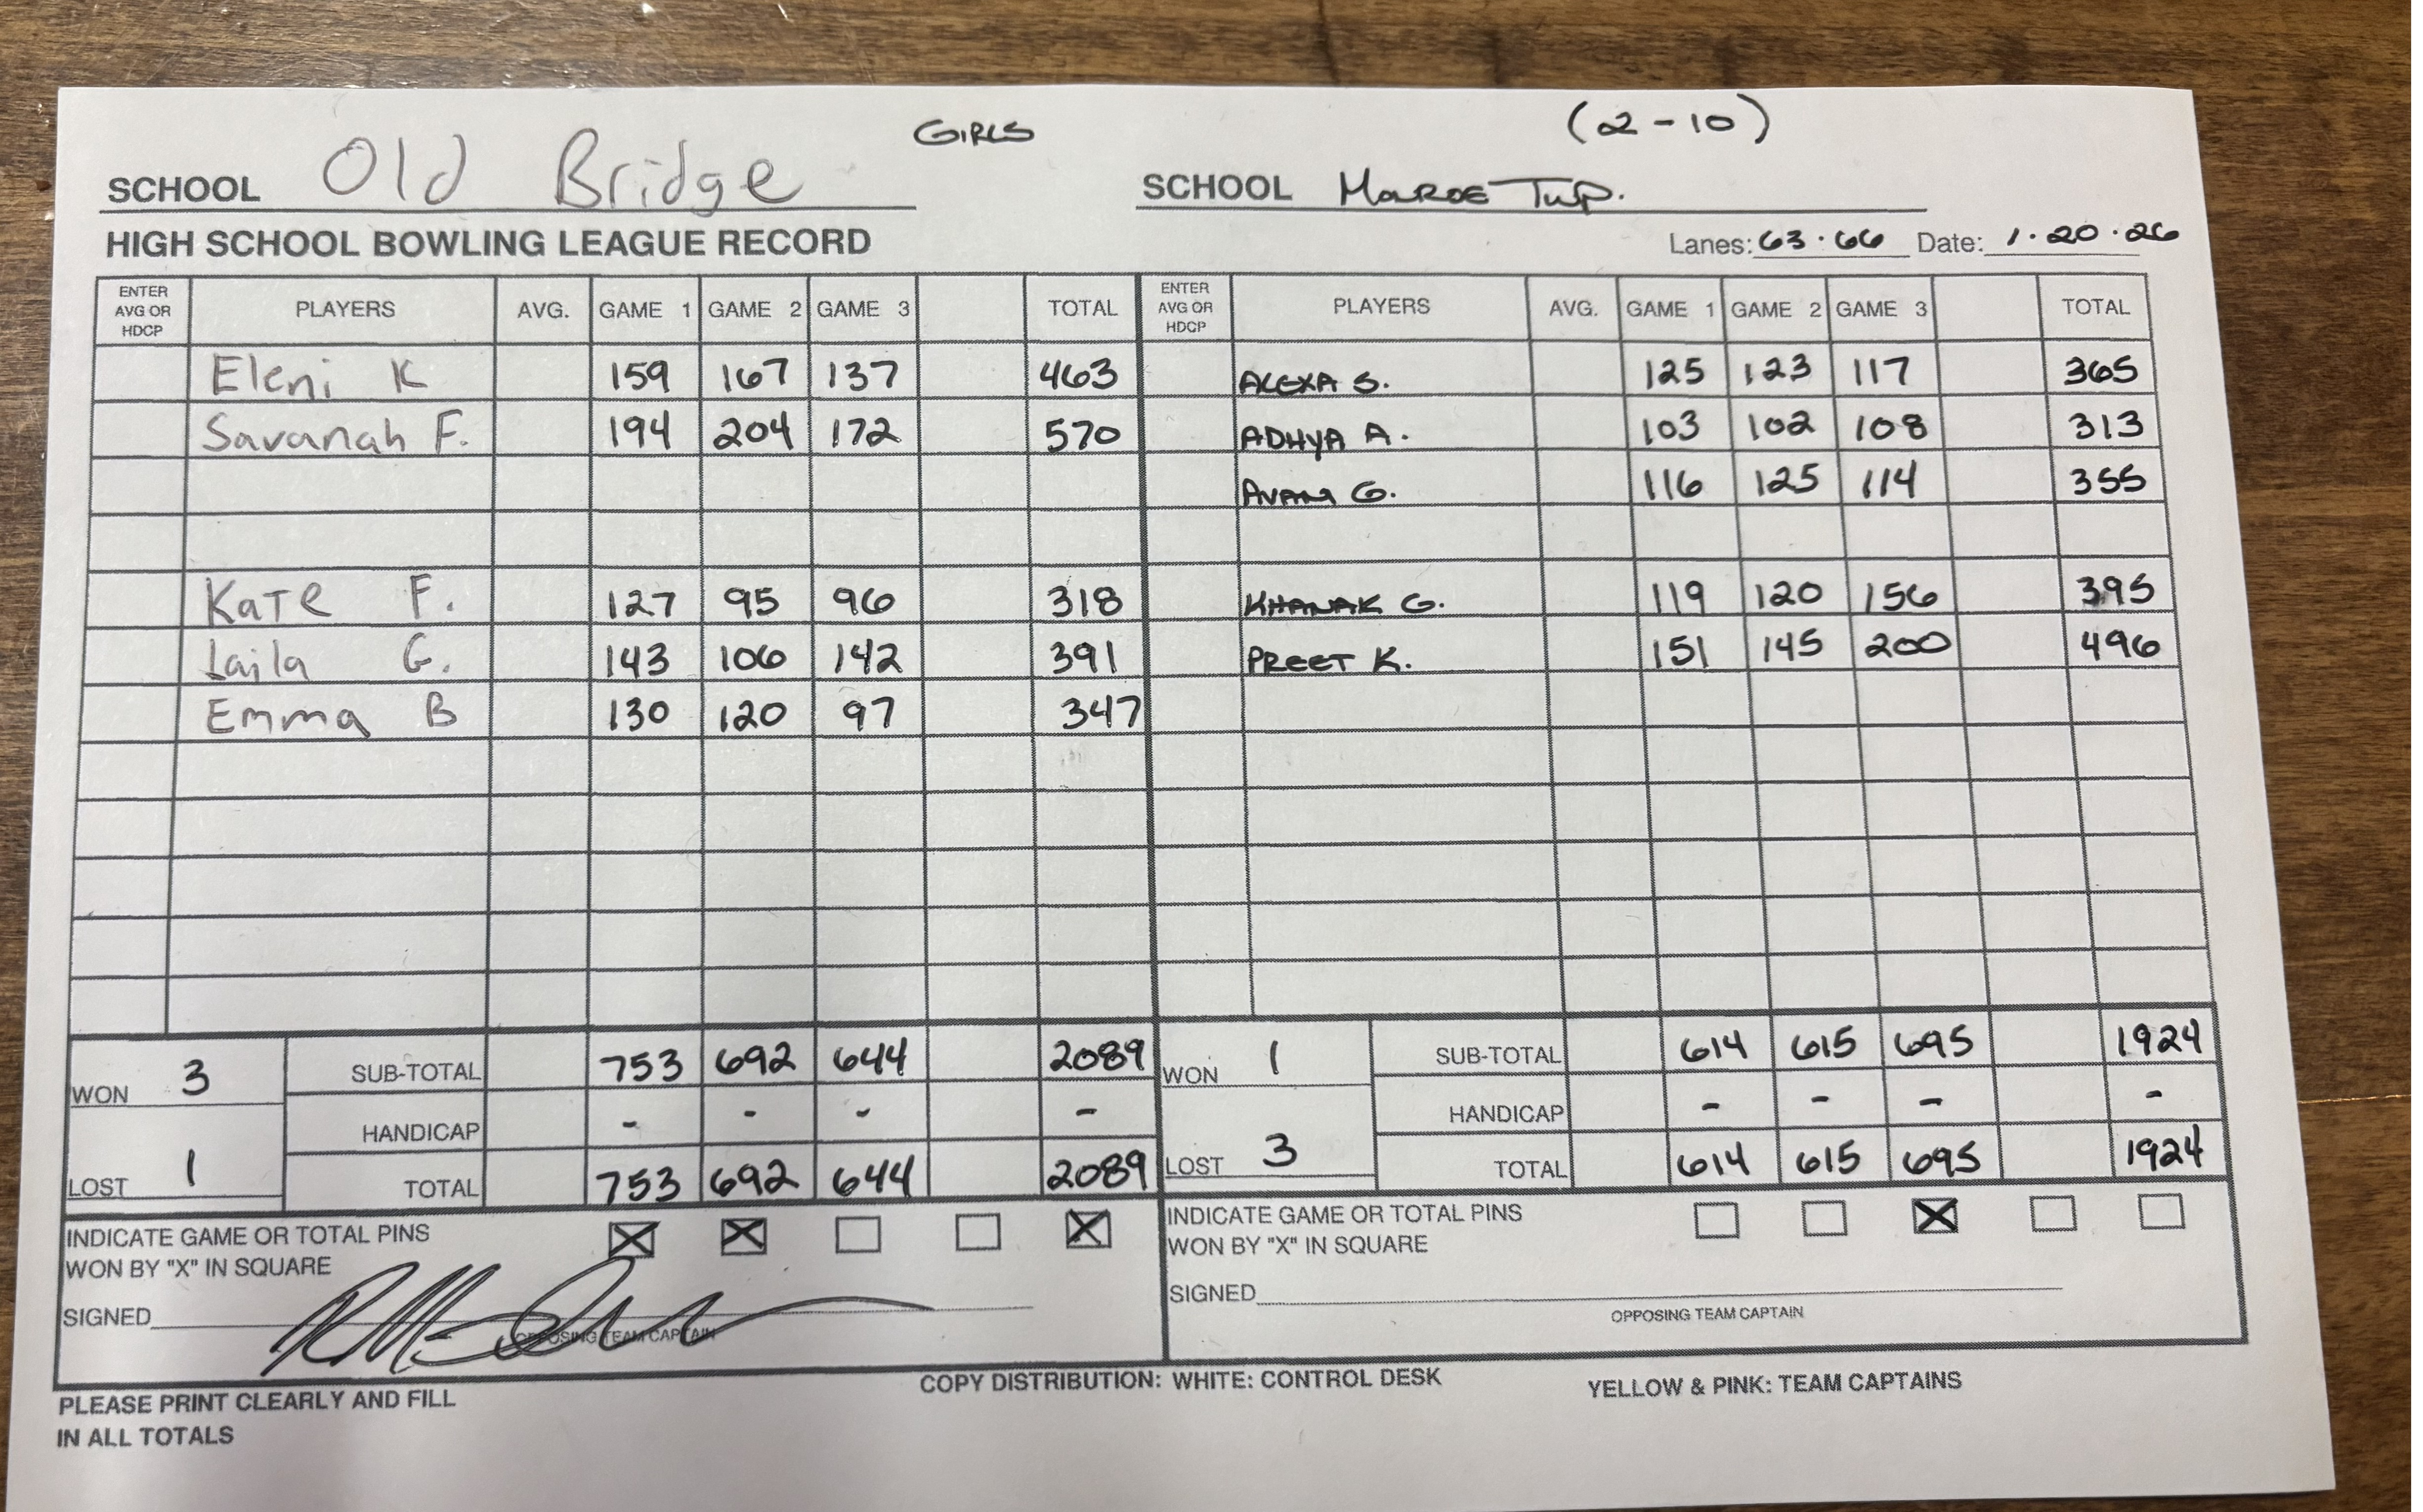 GIRLS (2-10)
SCHOOL Old Bridge SCHOOL Monroe Twp.
HIGH SCHOOL BOWLING LEAGUE RECORD Lanes: 63·66 Date: 1·20·26
ENTER AVG OR HDCP PLAYERS AVG. GAME 1 GAME 2 GAME 3 TOTAL ENTER AVG OR HDCP PLAYERS AVG. GAME 1 GAME 2 GAME 3 TOTAL
Eleni K 159 167 137 463 ALEXA S. 125 123 117 365
Savanah F. 194 204 172 570 ADHYA A. 103 102 108 313
G. 116 125 114 355
Kate F. 127 95 96 318 KHANAK G. 119 120 156 395
Laila G. 143 106 142 391 PREET K. 151 145 200 496
Emma B 130 120 97 347
WON 3 SUB-TOTAL 753 692 644 2089 WON 1 SUB-TOTAL 614 615 695 1924
HANDICAP - - - - HANDICAP - - - -
LOST 1 TOTAL 753 692 644 2089 LOST 3 TOTAL 614 615 695 1924
INDICATE GAME OR TOTAL PINS X X X INDICATE GAME OR TOTAL PINS X
WON BY "X" IN SQUARE WON BY "X" IN SQUARE
SIGNED SIGNED
OPPOSING TEAM CAPTAIN OPPOSING TEAM CAPTAIN
PLEASE PRINT CLEARLY AND FILL COPY DISTRIBUTION: WHITE: CONTROL DESK YELLOW & PINK: TEAM CAPTAINS
IN ALL TOTALS